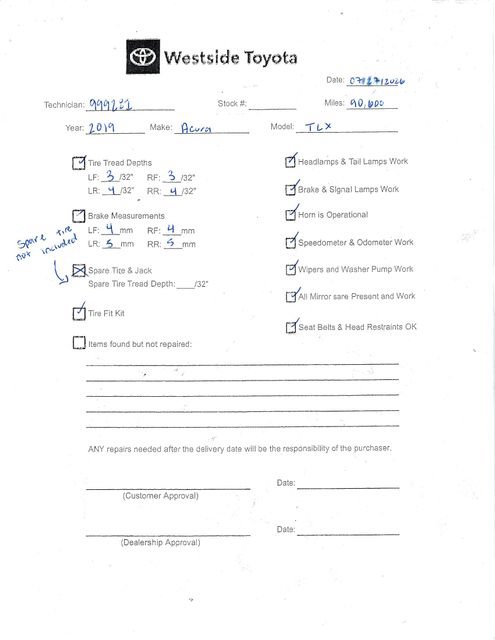 Westside Toyota
Date:
Technician: 999221 Stock #: Miles: 90,600
Year: 2019 Make: Acura Model: TLX
Tire Tread Depths
LF: 3 /32" RF: 3 /32"
LR: 4 /32" RR: 4 /32"
Brake Measurements
LF: 4 mm RF: 4 mm
LR: 5 mm RR: 5 mm
Spare tire
not included
Spare Tire & Jack
Spare Tire Tread Depth: /32"
Tire Fit Kit
Items found but not repaired:
Headlamps & Tail Lamps Work
Brake & Signal Lamps Work
Horn is Operational
Speedometer & Odometer Work
Wipers and Washer Pump Work
All Mirror sare Present and Work
Seat Belts & Head Restraints OK
ANY repairs needed after the delivery date will be the responsibility of the purchaser.
Date:
(Customer Approval)
Date:
(Dealership Approval)